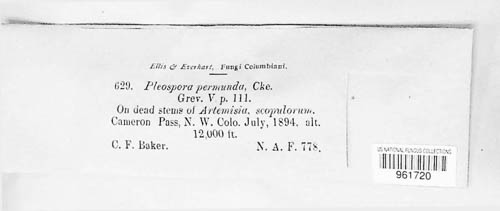 Ellis & Everhart, Fungi Columbiani.
629. Pleospora permunda, Cke.
Grev. V p. 111.
On dead stems of Artemisia, scopulorum.
Cameron Pass, N. W. Colo. July, 1894. alt.
12,000 ft.
C. F. Baker. N. A. F. 778.
US NATIONAL FUNGUS COLLECTIONS
961720